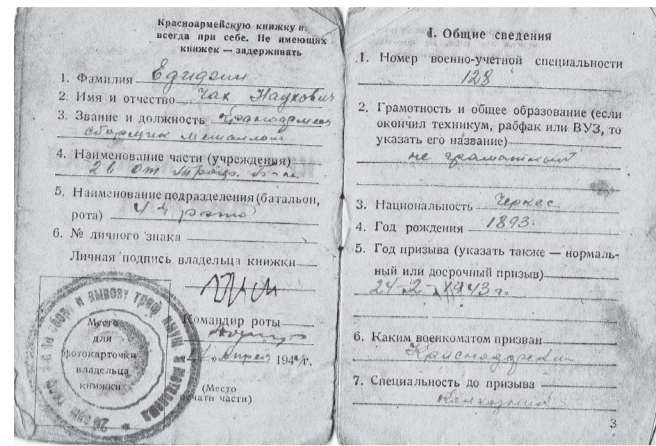 Красноармейскую книжку
всегда при себе. Не имеющих
книжек — задерживать
1. Фамилия
2. Имя и отчество Чак Наухович
3. Звание и должность Красноармеец
сборщик металлов
4. Наименование части (учреждения)
28 от
5. Наименование подразделения (батальон,
рота) 4я рота
6. № личного знака
Личная подпись владельца книжки
Командир роты
апрел 194 г.
Место
для
фотокарточки
владельца
книжки
(Место
печати части)
I. Общие сведения
1. Номер военно-учетной специальности
128
2. Грамотность и общее образование (если
окончил техникум, рабфак или ВУЗ, то
указать его название)
не грамотный
3. Национальность Черкес
4. Год рождения 1893
5. Год призыва (указать также — нормаль-
ный или досрочный призыв)
24-2-1943 г
6. Каким военкоматом призван
Краснодарским
7. Специальность до призыва
колхозник
3